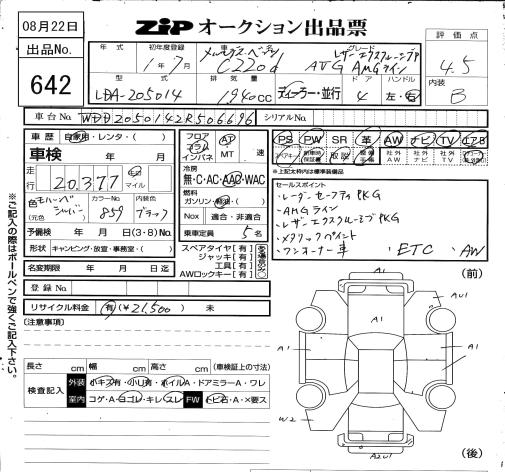 08月22日
出品No.
642
ZIP オークション出品票
年式 初年度登録 車名 グレード
1年7月 メルセデス・ベンツ C220d レザーエクスクルーシブP AVG AMGライン
型式 排気量 ドア ハンドル
LDA-205014 1940cc ディーラー・並行 4 左・右
評価点
4.5
内装
B
車台No. WDD2050142R506696 シリアルNo.
車歴 自家用・レンタ・( )
車検 年 月
走行 20,377 キロ マイル
色 (元色) カラーNo. 859 内装色 ブラック
予備検 年 月 日(3・8)No.
形状 キャンピング・放宣・事務室・( )
名変期限 年 月 日迄
登録No.
リサイクル料金 有(¥21,500) 未
フロア コラム インパネ AT MT 速
冷房
無・C・AC・AAC・WAC
燃料
ガソリン・軽油・( )
Nox 適合・非適合
乗車定員 5名
スペアタイヤ[有]
ジャッキ[有]
工具[有]
AWロックキー[有]
PS PW SR 革 AW ナビ TV エアB
取説
↑上記太枠内は標準装備品
セールスポイント
・レーダーセーフティPKG
・AMGライン
・レザーエクスクルーシブPKG
・メタリックペイント
・ワンオーナー車 ・ETC ・AW
[注意事項]
長さ cm 幅 cm 高さ cm (車検証上の寸法)
検査記入 外装 小キズ有・小リ有・ホイルA・ドアミラーA・ワレ
室内 コゲ・A・ヨゴレ・キレ・スレ FW トビ石・A・X要ス
(前)
A1
AU1
A1
A1
A1
W2
A2U1
(後)
※ご記入の際はボールペンで強くご記入下さい。